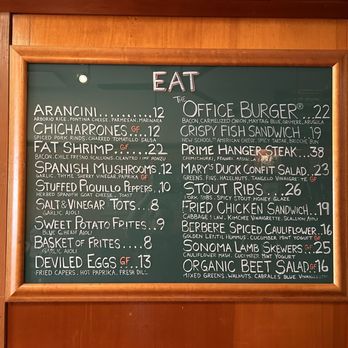 EAT
ARANCINI..........12
ARBORIO RICE, FONTINA CHEESE, PARMESAN, MARINARA
CHICHARRONES GF..12
SPICED PORK RINDS, CHARRED TOMATILLO SALSA
FAT SHRIMP GF......21
BACON, CHILE FRESNO SCALLIONS, CILANTRO LIME
SPANISH MUSHROOMS..12
GARLIC, THYME, SHERRY VINEGAR, PAPRIKA GF
STUFFED PIQUILLO PEPPERS..10
HERBED SPANISH GOAT CHEESE, TOAST
SALT & VINEGAR TOTS....8
GARLIC AIOLI
SWEET POTATO FRITES...9
BLUE CHEESE AIOLI
BASKET OF FRITES....8
GARLIC AIOLI
DEVILED EGGS GF....13
FRIED CAPERS, HOT PAPRIKA, FRESH DILL
THE OFFICE BURGER®...22
BACON, CARMELIZED ONION, MAYTAG BLUE, GRUYERE, ARUGULA
CRISPY FISH SANDWICH..19
NEW SCHOOL AMERICAN CHEESE, SPICY TARTAR, BRIOCHE BUN
PRIME HANGER STEAK...38
CHIMICHURRI,
MARY'S DUCK CONFIT SALAD..23
GREENS, FIGS, HAZELNUTS, TANGELO VINAIGRETTE GF
STOUT RIBS...26
FORK TENDER, SPICY STOUT HONEY GLAZE
FRIED CHICKEN SANDWICH..19
CABBAGE SLAW, KIMCHI VINAIGRETTE, SCALLION AIOLI
BERBERE SPICED CAULIFLOWER..16
GOLDEN LENTIL HUMMUS, CUCUMBER MINT YOGURT GF
SONOMA LAMB SKEWERS GF..25
CAULIFLOWER MASH, CUCUMBER MINT YOGURT
ORGANIC BEET SALAD GF 16
MIXED GREENS, WALNUTS, CABRALES BLUE, VINAIGRETTE